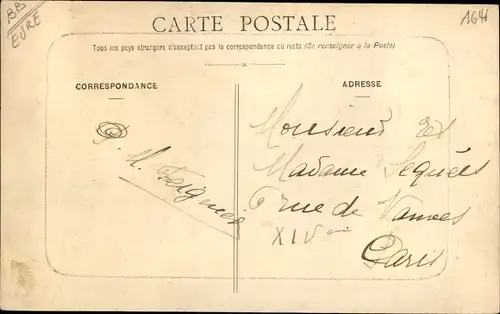 BB
EURE
164
CARTE POSTALE
Tous les pays étrangers n'acceptent pas la correspondance au recto (Se renseigner à la Poste)
CORRESPONDANCE
M.
ADRESSE
Monsieur Et
Madame
rue de Vanves
XIVe
Paris